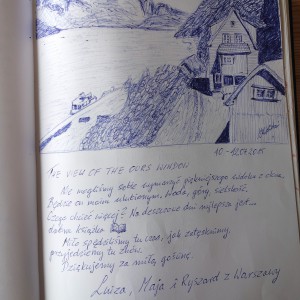 10-12.07.2015
THE VIEW OF THE OURS WINDOW
Nie mogliśmy sobie wymarzyć piękniejszego widoku z okna.
Będzie on moim ulubionym. Woda, góry, zieleność.
Czego chcieć więcej? Na deszczowe dni najlepsza jest...
dobra książka
Miło spędziliśmy tu czas, jak zatęsknimy,
przyjedziemy tu znów.
Dziękujemy za miłą gościnę.
Luiza, Maja i Ryszard z Warszawy